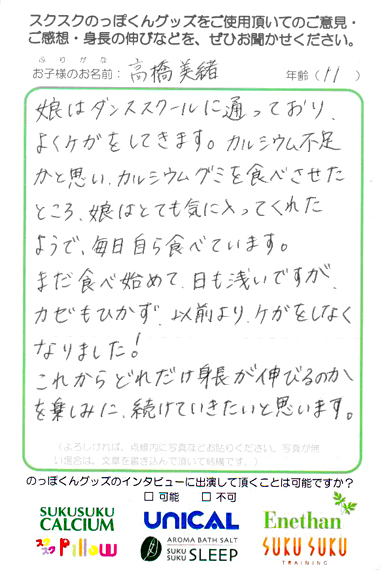 スクスクのっぽくんグッズをご使用頂いてのご意見・
ご感想・身長の伸びなどを、ぜひお聞かせください。
ふりがな
お子様のお名前:高橋美緒 年齢(11)
娘はダンススクールに通っており、
よくケガをしてきます。カルシウム不足
かと思い、カルシウムグミを食べさせた
ところ、娘はとても気に入ってくれた
ようで、毎日自ら食べています。
まだ食べ始めて、日も浅いですが、
カゼもひかず、以前より、ケガをしなく
なりました!
これからどれだけ身長が伸びるのか
を楽しみに、続けていきたいと思います。
(よろしければ、点線内に写真などお貼りください。写真が無
い場合は、文章を書き込んで頂いて結構です。)
のっぽくんグッズのインタビューに出演して頂くことは可能ですか?
□ 可能 □ 不可
SUKUSUKU CALCIUM UNICAL Enethan
スクスク Pillow AROMA BATH SALT SUKU SUKU SLEEP SUKU SUKU TRAINING